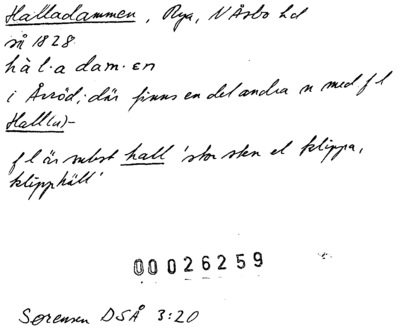 Halladammen, Rya, N Åsbo hd
så 1828
hàl·a dam·en
i Årröd; där finns en del andra n med f l
Hall(a)-
f l är subst hall 'stor sten el klippa,
klipphäll'
00026259
Sørensen DSÅ 3:20